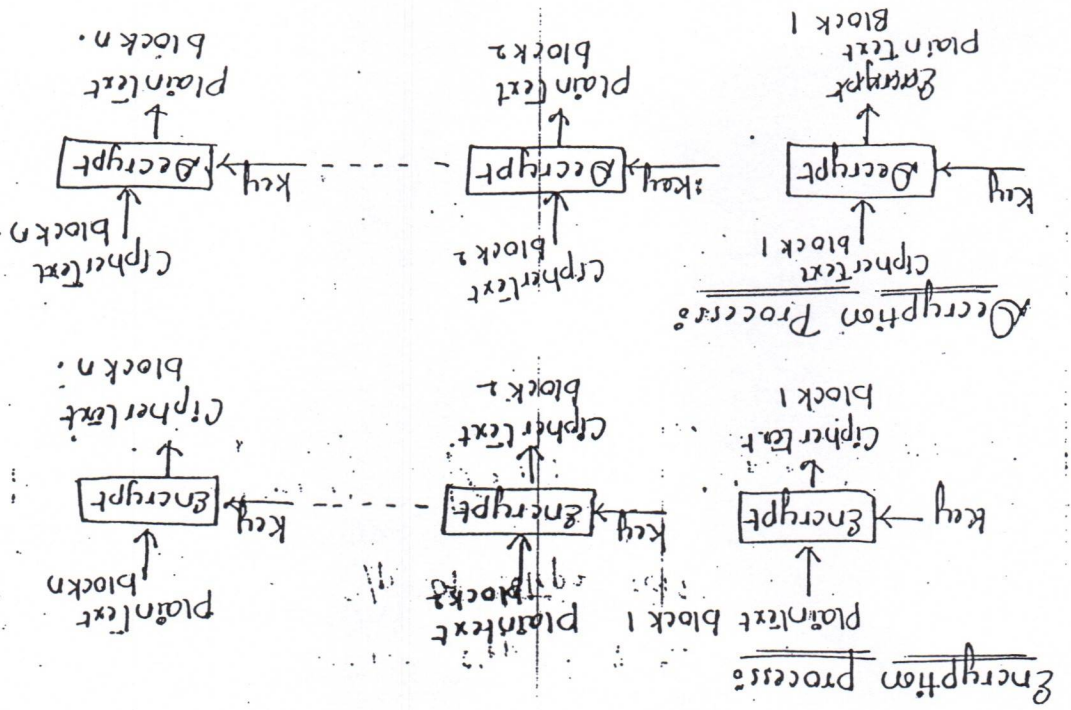 Encryption process:
plaintext block 1
Key
Encrypt
Ciphertext
block 1
plaintext
block 2
Key
Encrypt
Ciphertext
block 2
plaintext
block n
Key
Encrypt
Ciphertext
block n.
Decryption Process:
Ciphertext
block 1
Key
Decrypt
Encrypt
plaintext
Block 1
Ciphertext
block 2
Key
Decrypt
plaintext
block 2
Ciphertext
block n
Key
Decrypt
plaintext
block n.